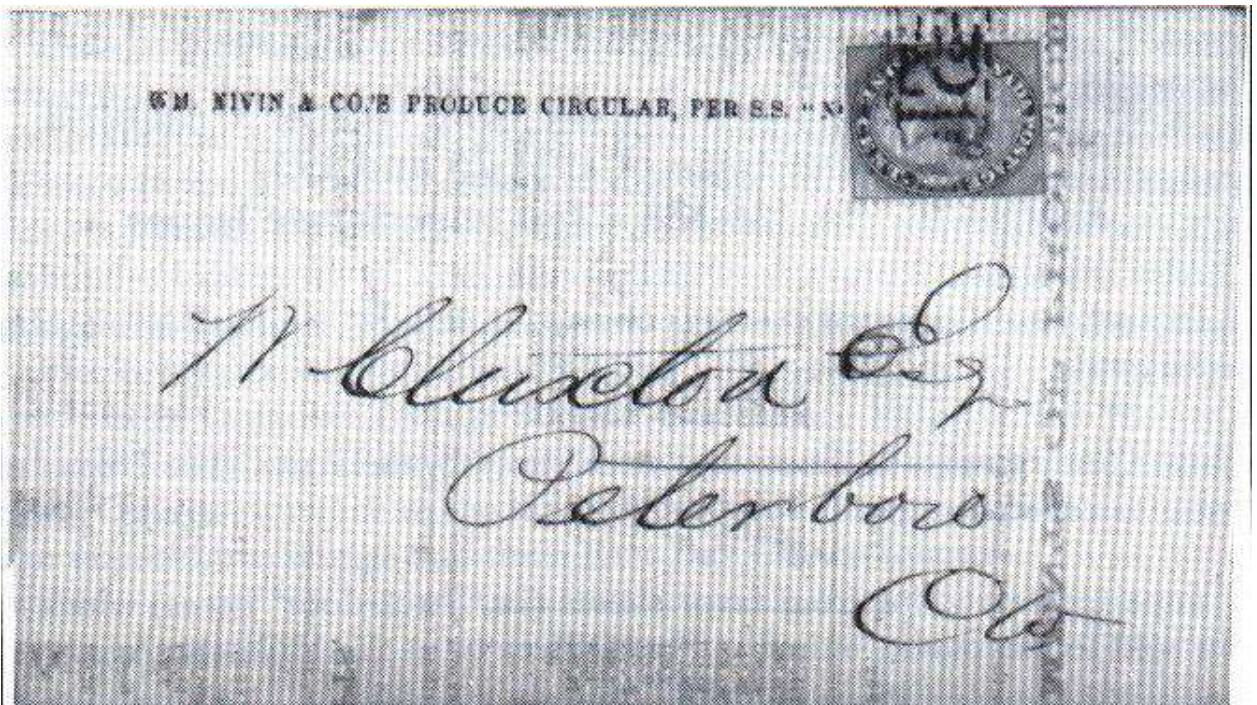 WM. NIVIN & CO.'S PRODUCE CIRCULAR, PER S.S. "N
POSTAGE
W Cluxton Esq
Peterboro
CW